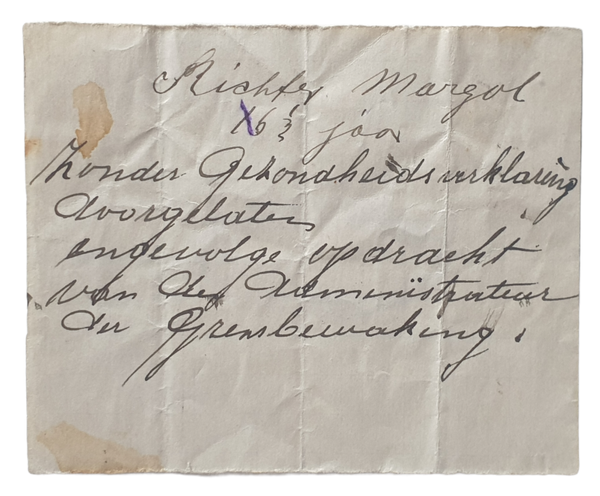 Richter Margot
16½ jaar
zonder Gezondheidsverklaring
doorgelaten
engevolge opdracht
van den Administrateur
der Grensbewaking.